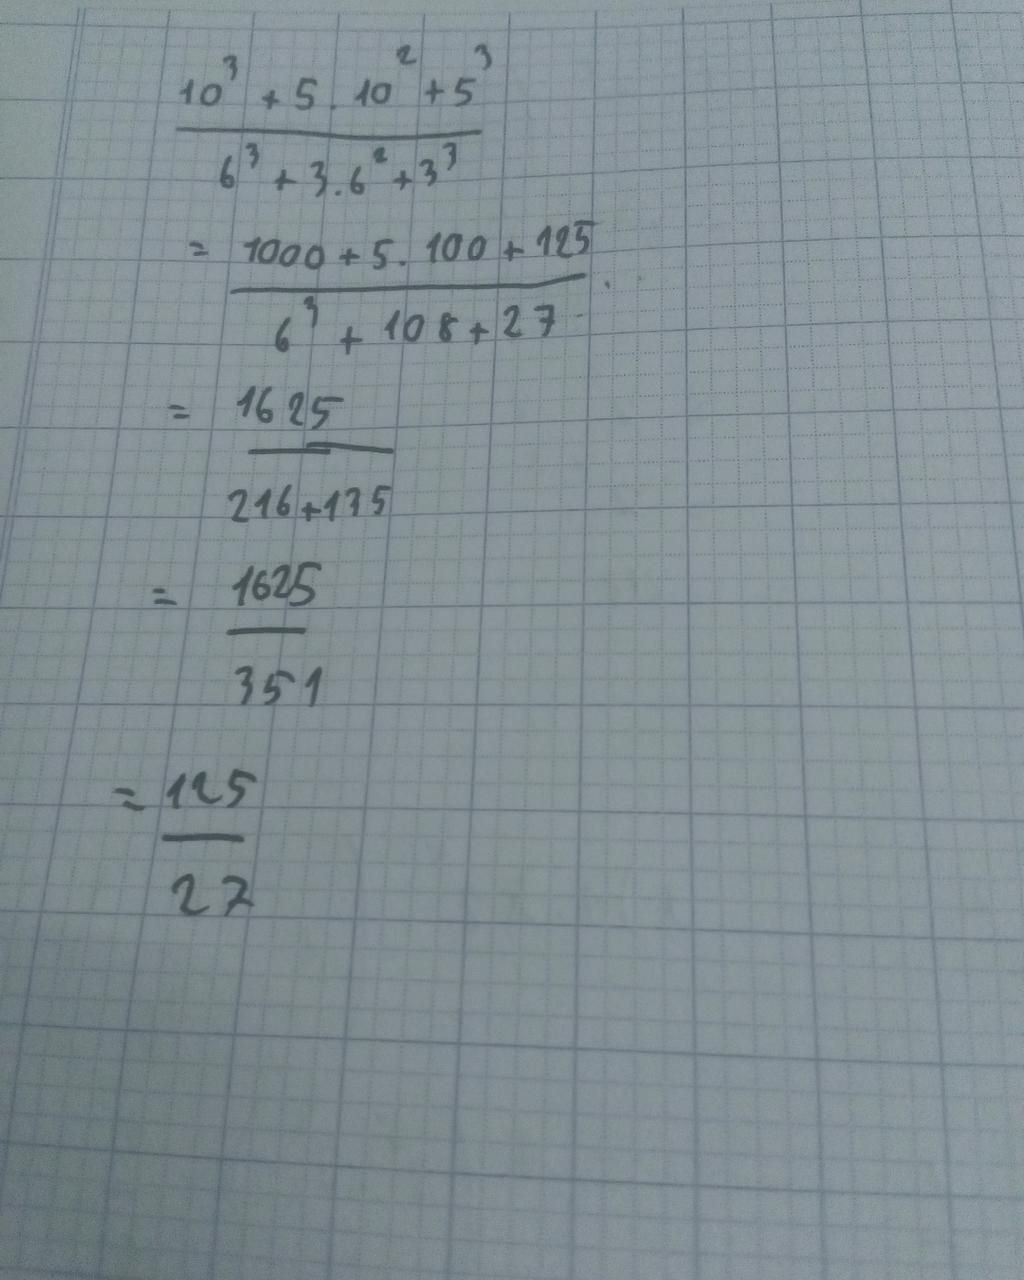 10³ + 5 . 10² + 5³
6³ + 3 . 6² + 3³
= 1000 + 5 . 100 + 125
6³ + 108 + 27
= 1625
216 + 135
= 1625
351
= 125
27